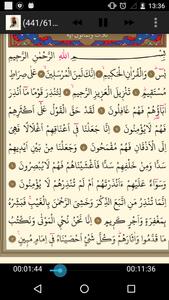 13:36
(441/61...
بِسْمِ اللهِ الرَّحْمٰنِ الرَّحِيمِ
يسٓ وَالْقُرْاٰنِ الْحَكِيمِ اِنَّكَ لَمِنَ الْمُرْسَلِينَ عَلٰى صِرَاطٍ
مُسْتَقِيمٍ تَنْزِيلَ الْعَزِيزِ الرَّحِيمِ لِتُنْذِرَ قَوْمًا مَٓا اُنْذِرَ
اٰبَٓاؤُهُمْ فَهُمْ غَافِلُونَ لَقَدْ حَقَّ الْقَوْلُ عَلٰٓى اَكْثَرِهِمْ
فَهُمْ لَا يُؤْمِنُونَ اِنَّا جَعَلْنَا فِٓي اَعْنَاقِهِمْ اَغْلَالًا فَهِيَ اِلَى
الْاَذْقَانِ فَهُمْ مُقْمَحُونَ وَجَعَلْنَا مِنْ بَيْنِ اَيْدِيهِمْ سَدًّا
وَمِنْ خَلْفِهِمْ سَدًّا فَاَغْشَيْنَاهُمْ فَهُمْ لَا يُبْصِرُونَ
وَسَوَٓاءٌ عَلَيْهِمْ ءَاَنْذَرْتَهُمْ اَمْ لَمْ تُنْذِرْهُمْ لَا يُؤْمِنُونَ
اِنَّمَا تُنْذِرُ مَنِ اتَّبَعَ الذِّكْرَ وَخَشِيَ الرَّحْمٰنَ بِالْغَيْبِ فَبَشِّرْهُ
بِمَغْفِرَةٍ وَاَجْرٍ كَرِيمٍ اِنَّا نَحْنُ نُحْيِ الْمَوْتٰى وَنَكْتُبُ
مَا قَدَّمُوا وَاٰثَارَهُمْ وَكُلَّ شَيْءٍ اَحْصَيْنَاهُ فِٓي اِمَامٍ مُبِينٍ
00:01:44 00:11:36